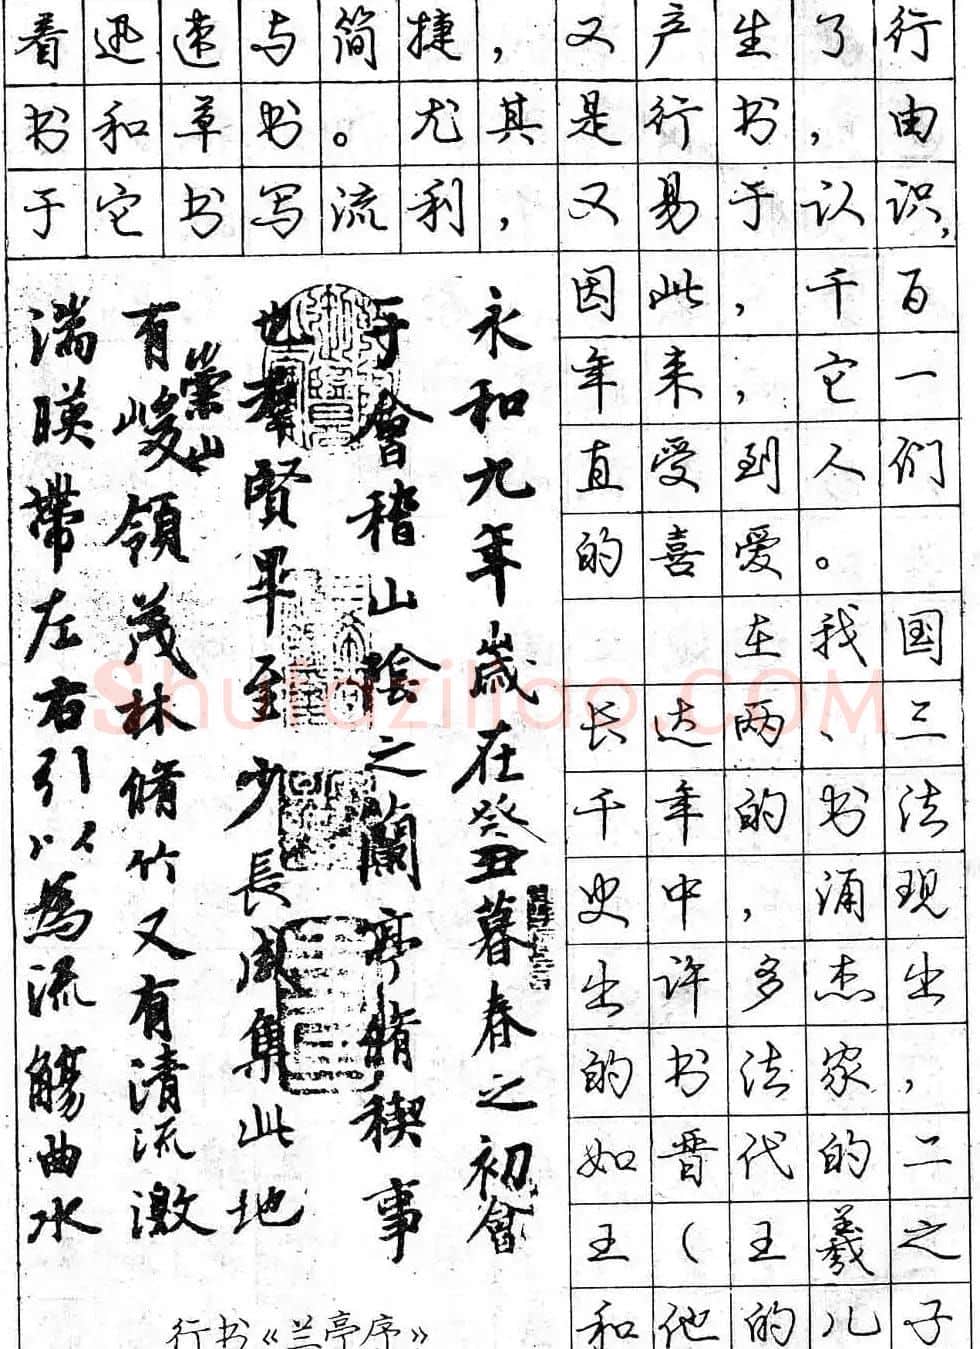 着迅速与简捷，又产生了行
书和草书。尤其是行书，由
于它书写流利，又易于认识，
因此，千百
年来，它一
直受到人们
的喜爱。
在我国
长达两、三
千年的书法
史中，涌现
出许多杰出
的书法家，
如晋代的二
王（王羲之
和他的儿子
永和九年歲在癸丑暮春之初會
于會稽山陰之蘭亭脩稧事
也羣賢畢至少長咸集此地
崇山
有峻領茂林脩竹又有清流激
湍暎帶左右引以為流觴曲水
行书《兰亭序》
Shufaziliao.COM